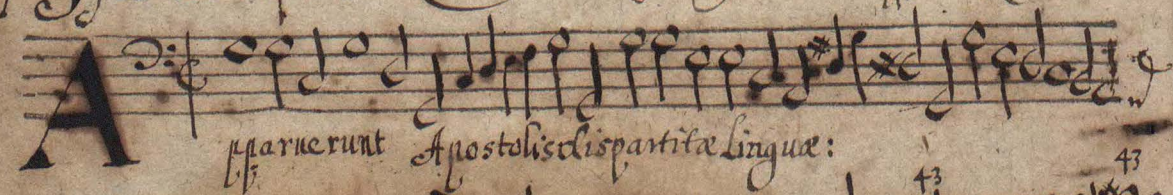 Apparuerunt Apostolis dispartitæ linguæ:
43
43